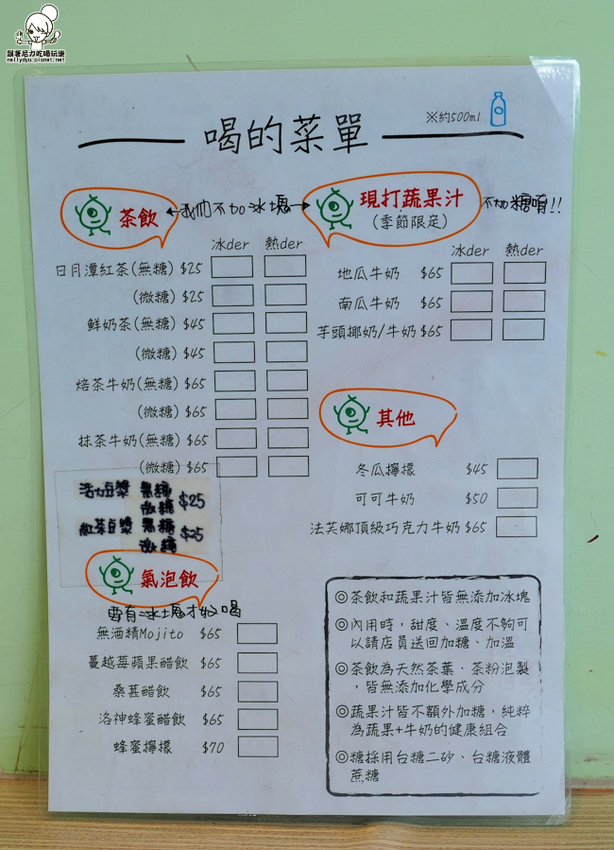 跟著尼力吃喝玩樂
nellydyu.pixnet.net
喝的菜單
※約500ml
茶飲
我們不加冰塊
現打蔬果汁
(季節限定)
不加糖唷!!
冰der 熱der
日月潭紅茶(無糖) $25
(微糖) $25
鮮奶茶(無糖) $45
(微糖) $45
焙茶牛奶(無糖) $65
(微糖) $65
抹茶牛奶(無糖) $65
(微糖) $65
豆漿 無糖 $25
微糖
紅茶豆漿 無糖 $25
微糖
冰der 熱der
地瓜牛奶 $65
南瓜牛奶 $65
芋頭椰奶/牛奶 $65
其他
冬瓜檸檬 $45
可可牛奶 $50
法芙娜頂級巧克力牛奶 $65
氣泡飲
要有冰塊才好喝
無酒精Mojito $65
蔓越莓蘋果醋飲 $65
桑葚醋飲 $65
洛神蜂蜜醋飲 $65
蜂蜜檸檬 $70
◎茶飲和蔬果汁皆無添加冰塊
◎內用時，甜度、溫度不夠可
以請店員送回加糖、加溫
◎茶飲為天然茶葉、茶粉泡製
，皆無添加化學成分
◎蔬果汁皆不額外加糖，純粹
為蔬果+牛奶的健康組合
◎糖採用台糖二砂、台糖液體
蔗糖